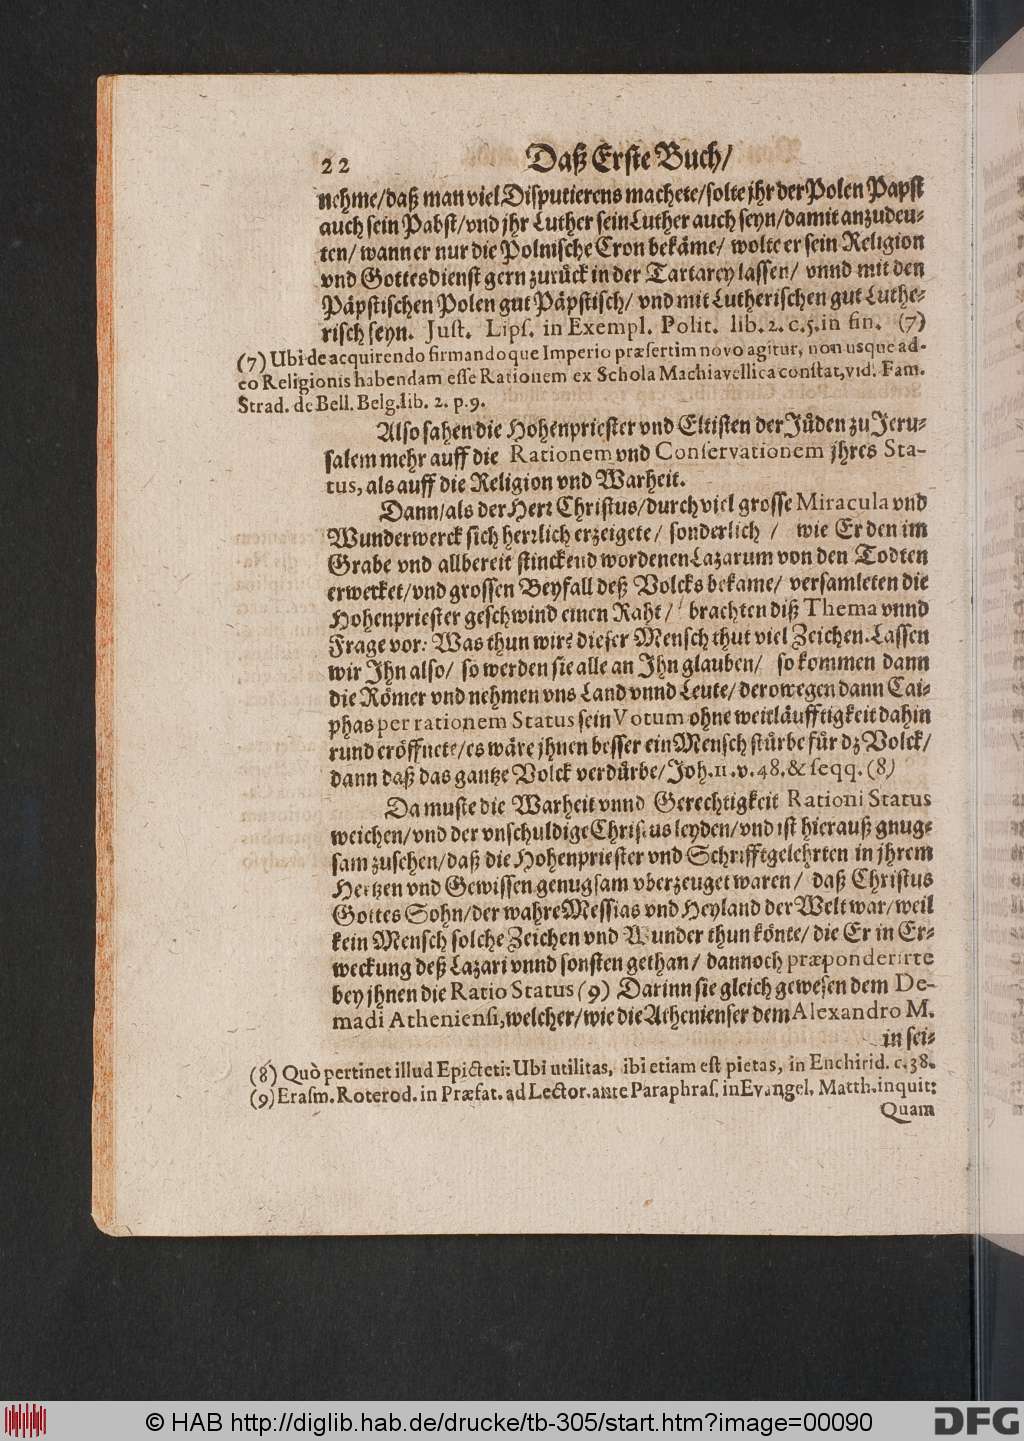 22 Daß Erste Buch/
nehme/daß man viel Disputierens machete/solte jhr der Polen Papst
auch sein Pabst/vnd jhr Luther sein Luther auch seyn/damit anzudeu-
ten/ wann er nur die Polnische Cron bekäme/ wolte er sein Religion
vnd Gottesdienst gern zurück in der Tartarey lassen/ vnnd mit den
Päpstischen Polen gut Päpstisch/ vnd mit Lutherischen gut Luthe-
risch seyn. Just. Lips. in Exempl. Polit. lib. 2. c. 5. in fin. (7)
(7) Ubi de acquirendo firmandoque Imperio præsertim novo agitur, non usque ad-
eo Religionis habendam esse Rationem ex Schola Machiavellica constat, vid. Fam.
Strad. de Bell. Belg. lib. 2. p. 9.
Also sahen die Hohenpriester vnd Eltisten der Jůden zu Jeru-
salem mehr auff die Rationem vnd Conservationem jhres Sta-
tus, als auff die Religion vnd Warheit.
Dann/als der Herr Christus/durch viel grosse Miracula vnd
Wunderwerck sich herrlich erzeigete/ sonderlich / wie Er den im
Grabe vnd allbereit stinckend wordenen Lazarum von den Todten
erwecket/vnd grossen Beyfall deß Volcks bekame/ versamleten die
Hohenpriester geschwind einen Raht/ brachten diß Thema vnnd
Frage vor: Was thun wir? dieser Mensch thut viel Zeichen. Lassen
wir Jhn also/ so werden sie alle an Jhn glauben/ so kommen dann
die Römer vnd nehmen vns Land vnnd Leute/ derowegen dann Cai-
phas per rationem Status sein Votum ohne weitläufftigkeit dahin
rund eröffnete/es wäre jhnen besser ein Mensch stürbe für dz Volck/
dann daß das gantze Volck verdürbe/ Joh. 11. v. 48. & seqq. (8)
Da muste die Warheit vnnd Gerechtigkeit Rationi Status
weichen/vnd der vnschuldige Christus leyden/vnd ist hierauß gnug-
sam zusehen/daß die Hohenpriester vnd Schrifftgelehrten in jhrem
Hertzen vnd Gewissen genugsam vberzeuget waren/ daß Christus
Gottes Sohn/der wahre Messias vnd Heyland der Welt war/weil
kein Mensch solche Zeichen vnd Wunder thun könte/ die Er in Er-
weckung deß Lazari vnnd sonsten gethan/ dannoch præponderirte
bey jhnen die Ratio Status (9) Darinn sie gleich gewesen dem De-
madi Atheniensi, welcher/wie die Athenienser dem Alexandro M.
in sei-
(8) Quò pertinet illud Epicteti: Ubi utilitas, ibi etiam est pietas, in Enchirid. c. 38.
(9) Erasm. Roterod. in Præfat. ad Lector. ante Paraphras. in Evangel. Matth. inquit:
Quam
© HAB http://diglib.hab.de/drucke/tb-305/start.htm?image=00090
DFG